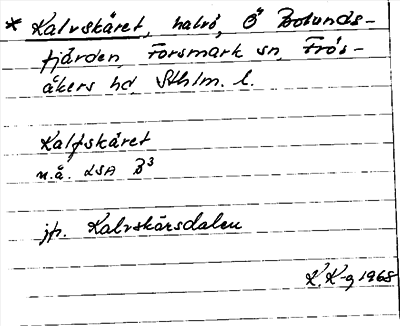 * Kalvskäret, halvö, Ö Botunds-
fjärden, Forsmark sn, Frös-
åkers hd, Sthlm. l.
Kalfskäret
n.ä. LSA B3
jfr. Kalvskärsdalen
K. K-g 1968